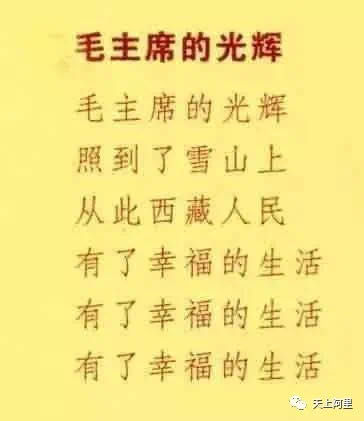 毛主席的光辉
毛主席的光辉
照到了雪山上
从此西藏人民
有了幸福的生活
有了幸福的生活
有了幸福的生活
天上阿里